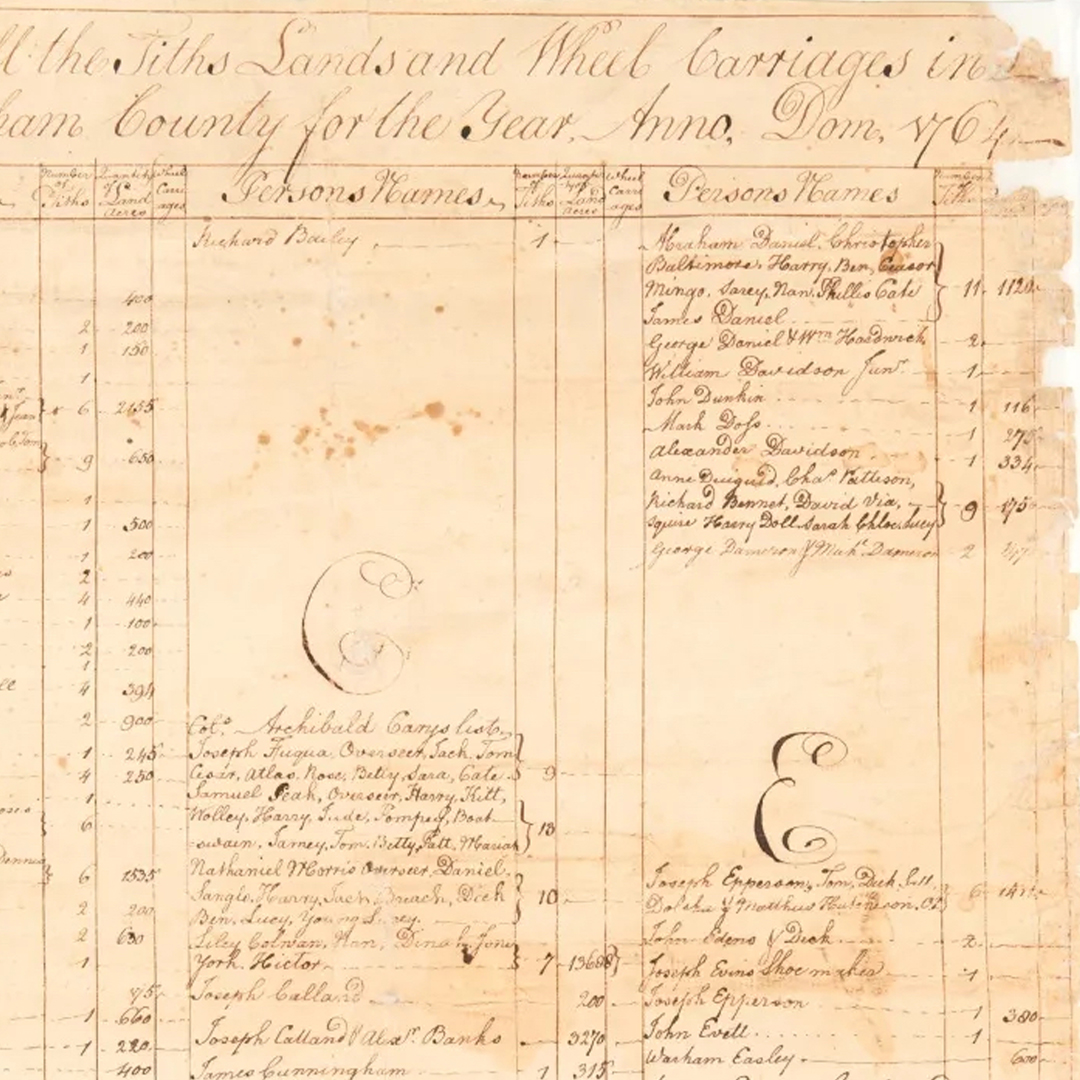 the Tiths Lands and Wheel Carriages in
ham County for the Year, Anno, Dom, 1764
Number of Tiths Quantity of Land acres Wheel Carri ages
400
2 200
1 150
1
6 2155
9 650
1
1 500
1 200
2
4 440
1 100
2 200
1
4 394
2 900
1 245
4 250
1
6
6 1535
2 200
2 630
1
75
1 660
1 220
400
Persons Names Number of Tiths Land acres Wheel Carri ages
Richard Bailey 1
C
Colo. Archibald Carys list
Joseph Fuqua, Overseer, Jack, Tom
Cesar, Atlas, Rose, Betty, Sara, Cate 9
Samuel Peak, Overseir, Harry, Kitt,
Wolley, Harry, Jude, Pompey, Boat-
-swain, Jamey, Tom, Betty, Patt, Mariah 13
Nathaniel Morris Overseer, Daniel
Sango, Harry, Jack, Breach, Dick 10
Ben, Lucy, Young
York, Hictor 7 13688
Joseph Calland 200
Joseph Calland & Alexr. Banks 3270
James Cunningham 1 315
Persons Names
Abraham Daniel, Christopher
Baltimore, Harry, Ben, Ceasor
Mingo, Sarey, Nan, Phillis Cate 11 1120
James Daniel
George Daniel & Wm Hardwick 2
William Davidson Junr 1
John Dunkin 1 116
Mark Doss 1 275
Alexander Davidson 1 334
Anne Duiguid, Chas. Patteson,
Richard Bennet, David Via,
Squire Harry Doll Sarah Chloe Lucy 9 175
George Dameron & Micht. Dameron 2 247
E
Joseph Epperson, Tom, Dick,
& Matthew Hutcheson 6
John Edens & Deck 2
Joseph Evins Shoe maker 1
Joseph Epperson 1 380
John Evell 1
Warham Easley 600